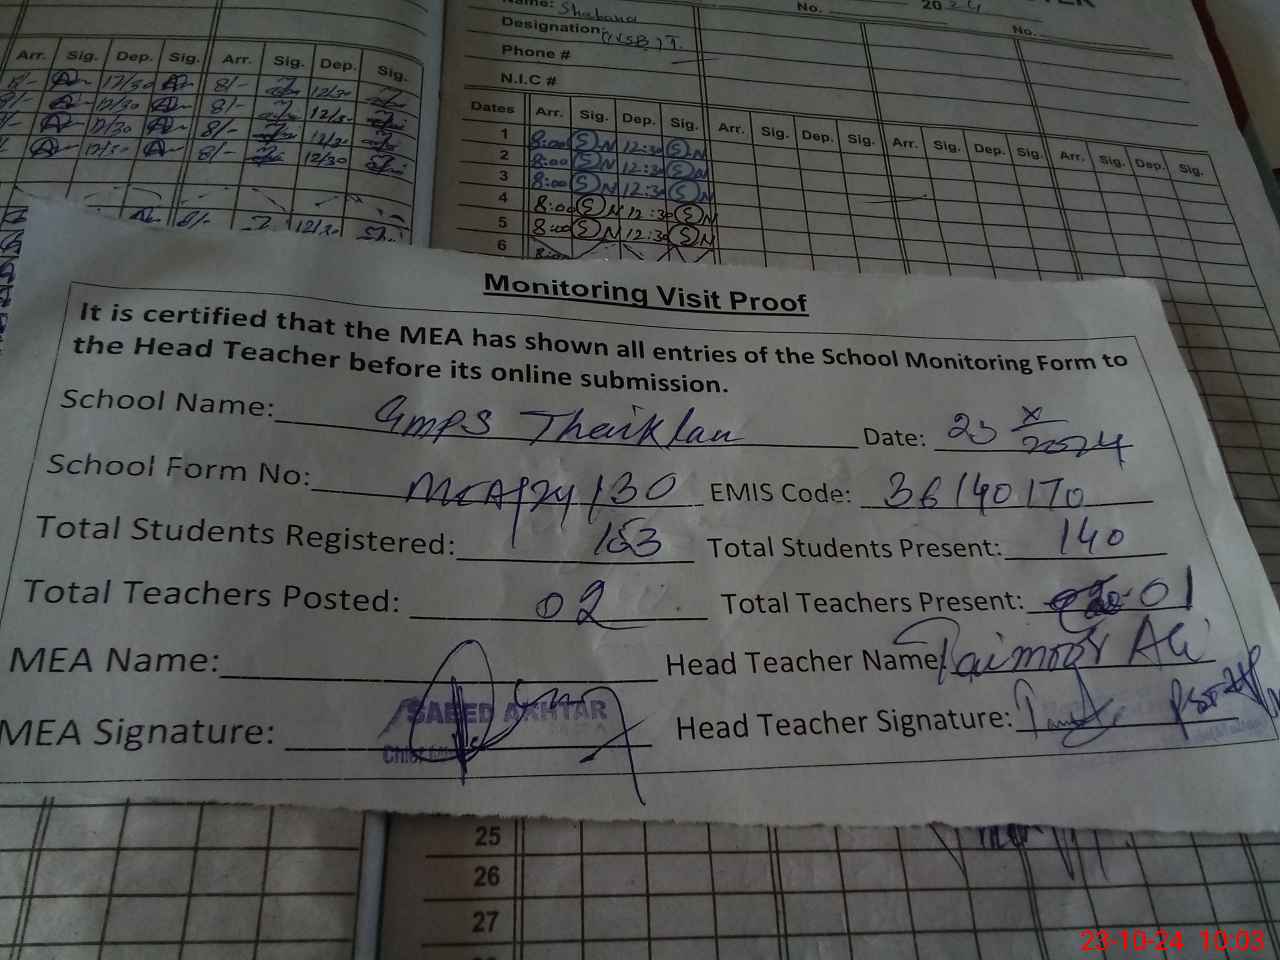 Name: Shabana
Designation: (NSB) T.
Phone #
N.I.C #
No.
2024
No.
Arr. Sig. Dep. Sig. Arr. Sig. Dep. Sig.
8/- 12/30 8/- 12/30
8/- 12/30 8/- 12/30
12/30 8/- 12/30
12/30 8/- 12/30
8/- 12/30
Dates Arr. Sig. Dep. Sig. Arr. Sig. Dep. Sig. Arr. Sig. Dep. Sig. Arr. Sig. Dep. Sig.
1 8:00 SN 12:30 SN
2 8:00 SN 12:30 SN
3 8:00 SN 12:30 SN
4 8:00 SN 12:30 SN
5 8:00 SN 12:30 SN
6 8:00
Monitoring Visit Proof
It is certified that the MEA has shown all entries of the School Monitoring Form to
the Head Teacher before its online submission.
School Name: GMPS Thaiklan Date: 23 X/2024
School Form No: MEA/24/130 EMIS Code: 36140170
Total Students Registered: 153 Total Students Present: 140
Total Teachers Posted: 02 Total Teachers Present: 01
MEA Name: Head Teacher Name: Taimoor Ali
MEA Signature: SAEED AKHTAR Head Teacher Signature: PST
25
26
27
23-10-24 10:03